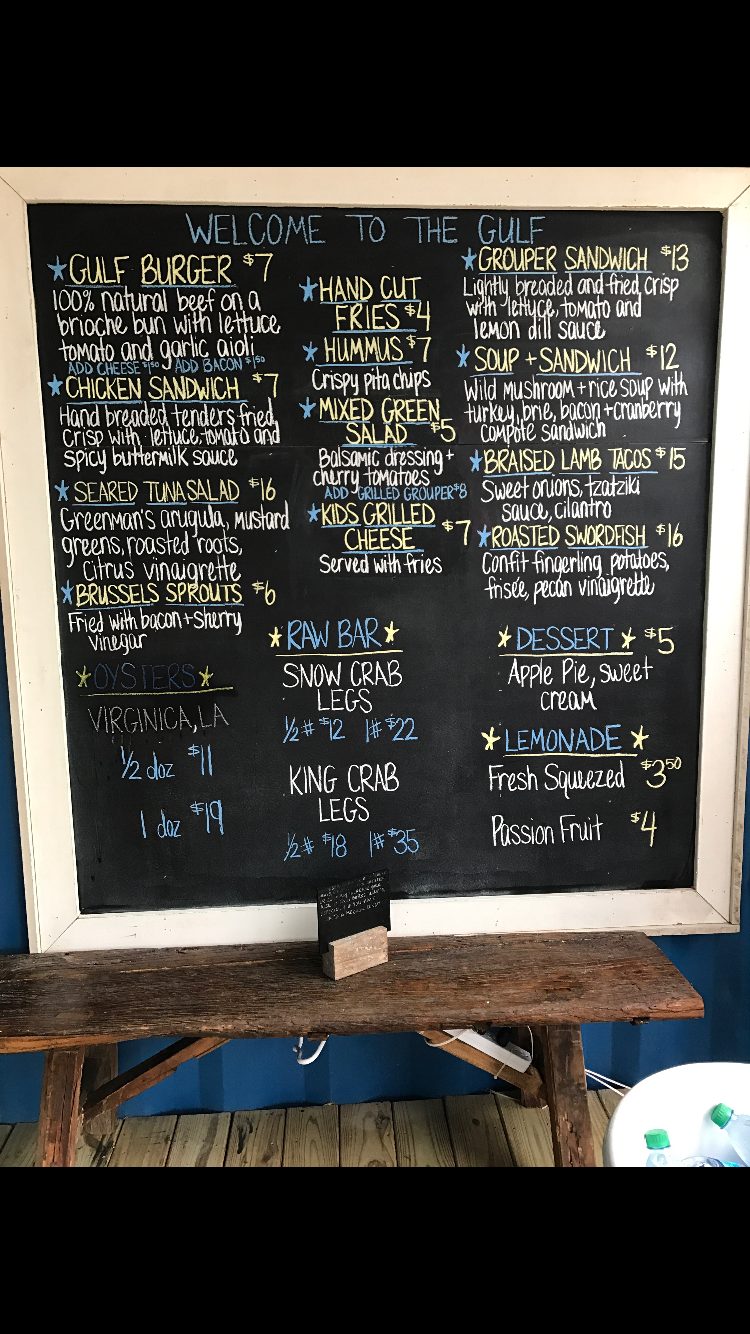 WELCOME TO THE GULF
GULF BURGER $7
100% natural beef on a
brioche bun with lettuce,
tomato and garlic aioli
ADD CHEESE $1.50 / ADD BACON $1.50
CHICKEN SANDWICH $7
Hand breaded tenders fried
crisp with lettuce, tomato and
spicy buttermilk sauce
SEARED TUNA SALAD $16
Greenman's arugula, mustard
greens, roasted roots,
citrus vinaigrette
BRUSSELS SPROUTS $6
Fried with bacon + sherry
vinegar
OYSTERS
VIRGINICA, LA
1/2 doz $11
1 doz $19
HAND CUT
FRIES $4
HUMMUS $7
Crispy pita chips
MIXED GREEN
SALAD $5
Balsamic dressing +
cherry tomatoes
ADD GRILLED GROUPER $8
KIDS GRILLED
CHEESE $7
Served with fries
RAW BAR
SNOW CRAB
LEGS
1/2# $12 1# $22
KING CRAB
LEGS
1/2# $18 1# $35
GROUPER SANDWICH $13
Lightly breaded and fried crisp
with lettuce, tomato and
lemon dill sauce
SOUP + SANDWICH $12
Wild mushroom + rice soup with
turkey, brie, bacon + cranberry
compote sandwich
BRAISED LAMB TACOS $15
Sweet onions, tzatziki
sauce, cilantro
ROASTED SWORDFISH $16
Confit fingerling potatoes,
frisée, pecan vinaigrette
DESSERT $5
Apple Pie, sweet
cream
LEMONADE
Fresh Squeezed $3.50
Passion Fruit $4